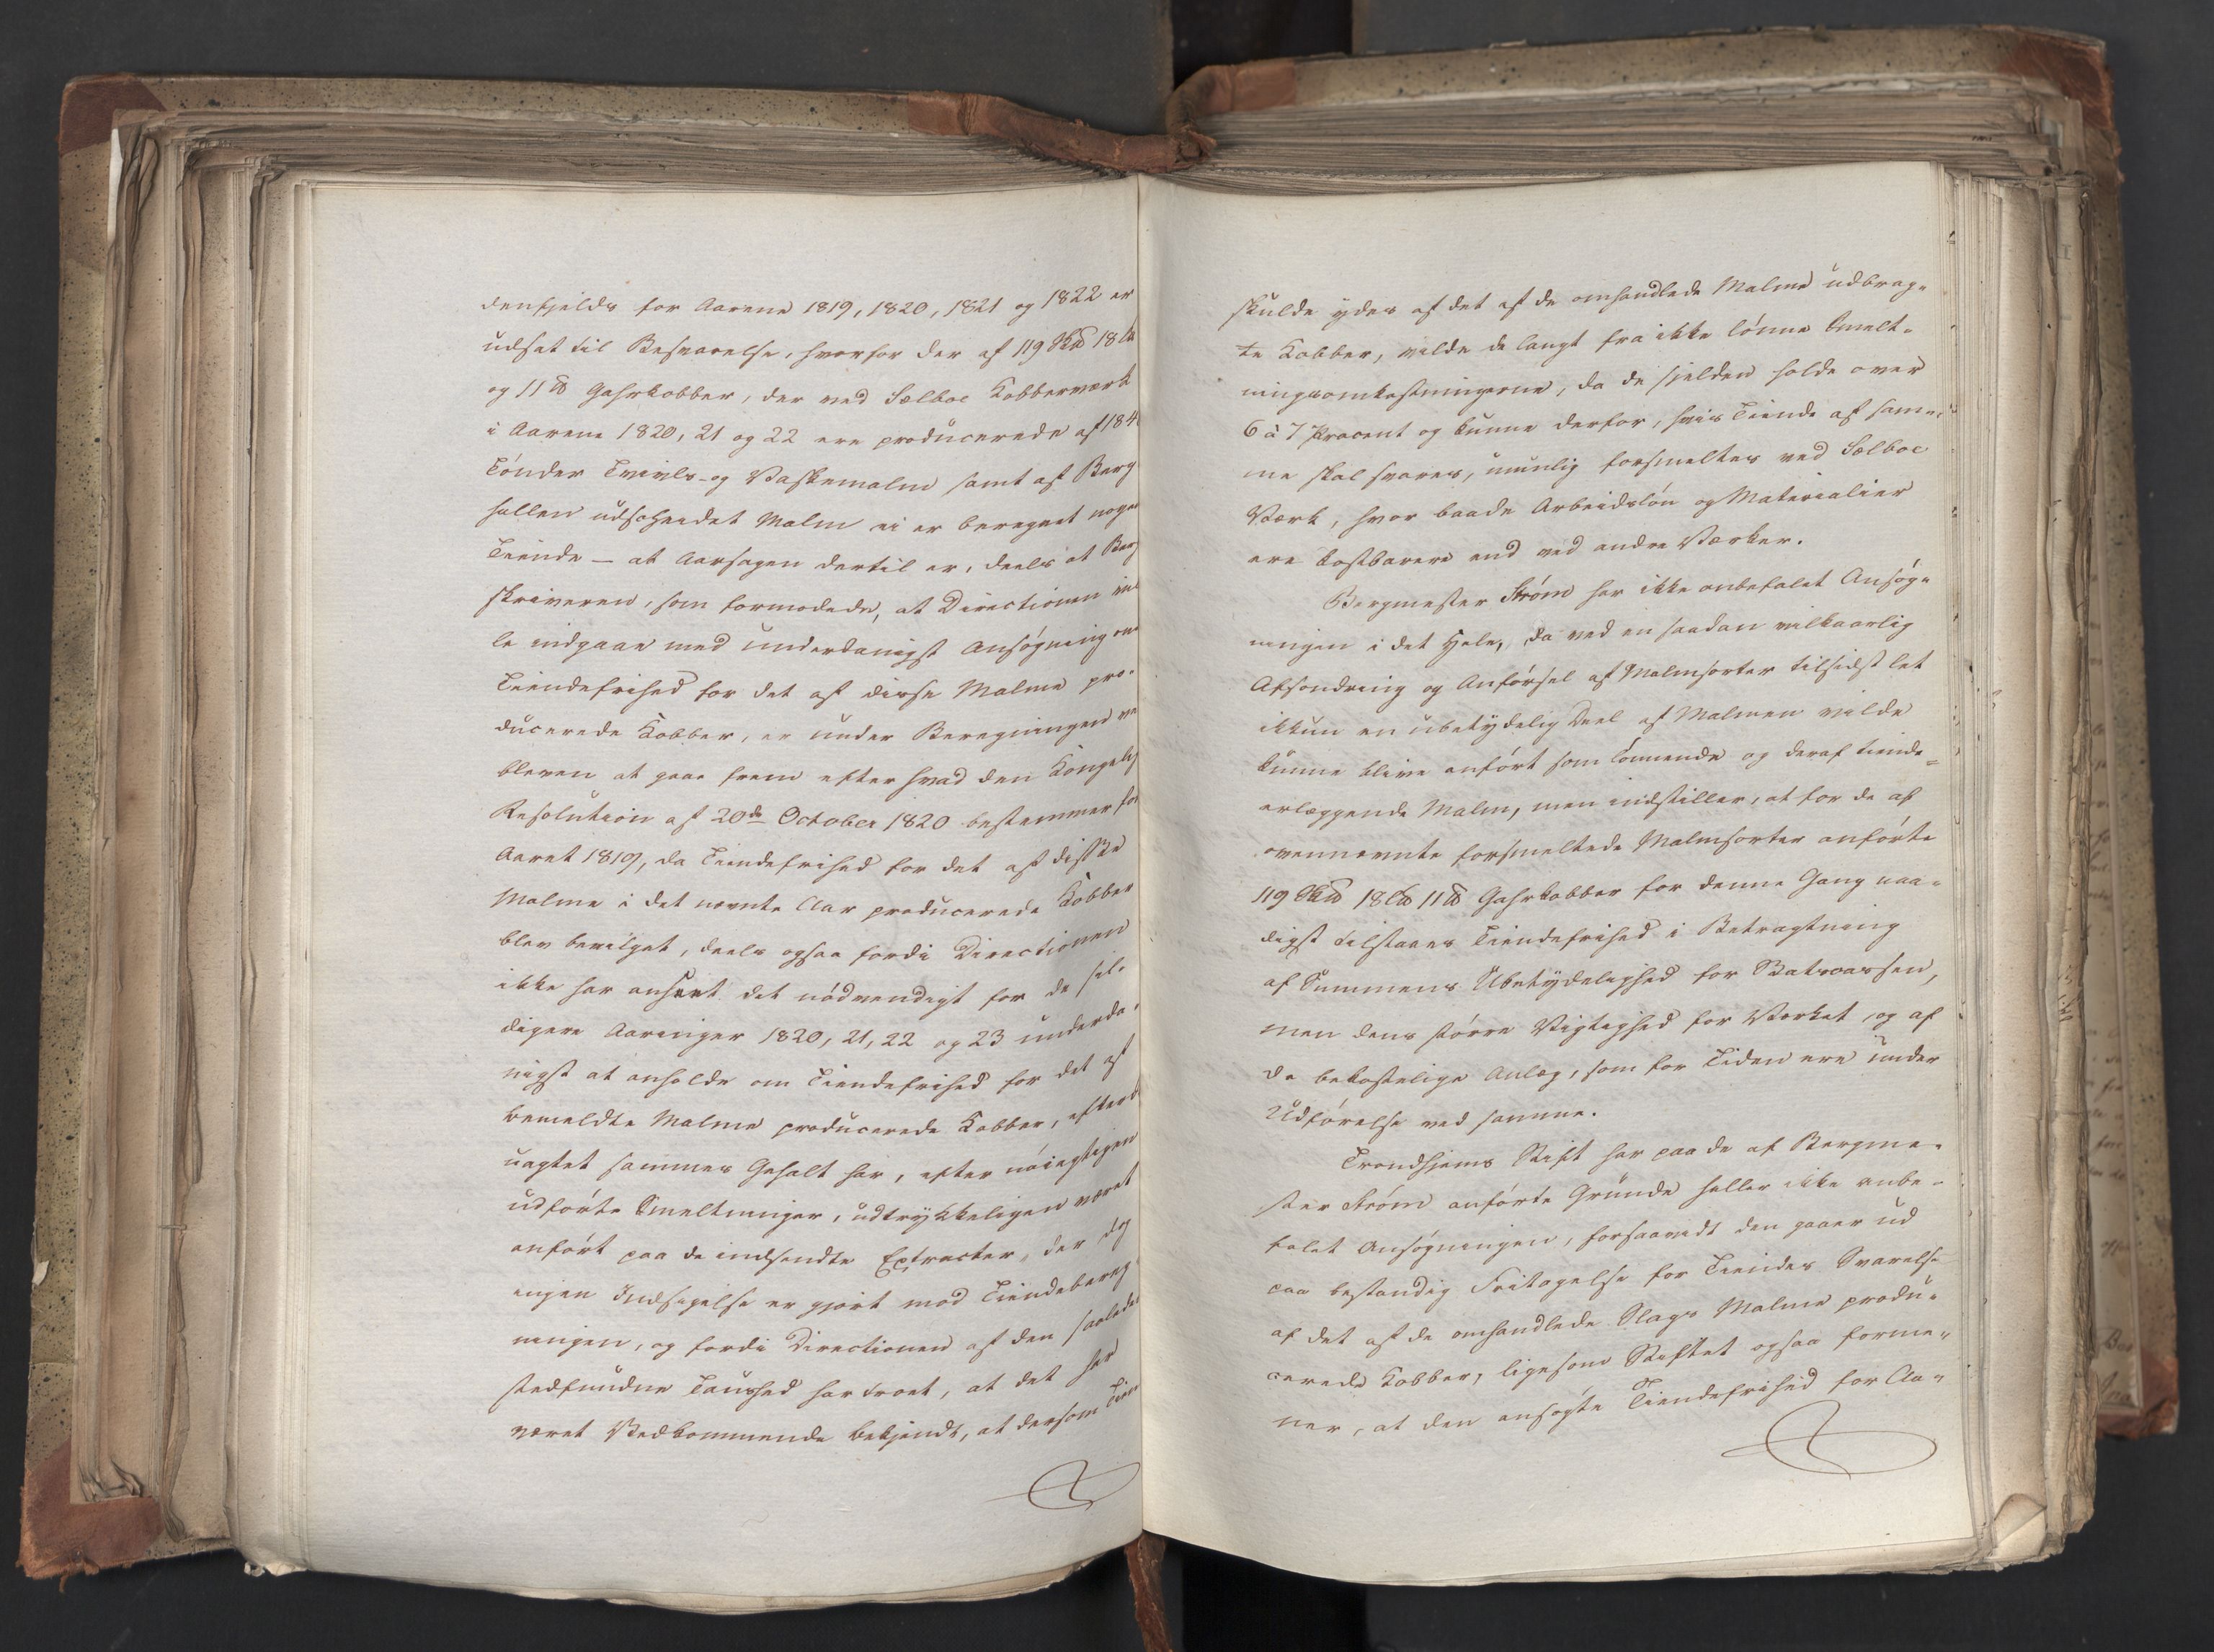 denfjelds for Aarene 1819, 1820, 1821 og 1822 er
udsat til Besvarelse, hvorfor der af 119 Sk℔ 18 L℔
og 11 ℔ Gahrkobber, der ved Sælboe Kobberværk
i Aarene 1820, 21 og 22 ere producerede af 184
Tønder Tvivls- og Vaskemalm samt af Berg
hallen udscheedet Malm ei er beregnet noget
Tiende – at Aarsagen dertil er, deels at Berg
skriveren, som formodede, at Directionen vil
le indgaae med underdanigst Ansøgning om
Tiendefrihed for det af disse Malme pro-
ducerede Kobber, er under Beregningen ve
bleven at gaae frem efter hvad den Kongelig
Resolution af 20de October 1820 bestemmer for
Aaret 1819, da Tiendefrihed for det af disse
Malme i det nævnte Aar producerede Kobber
blev bevilget, deels ogsaa fordi Directionen
ikke har anseet det nødvendigt for de sil-
digere Aaringer 1820, 21, 22 og 23 underda-
nigst at anholde om Tiendefrihed for det af
bemeldte Malme producerede Kobber, efterd
uagtet sammes Gehalt har, efter nöiagtigen
udförte Smeltninger, udtrykkeligen været
anfört paa de indsendte Extracter, der dog
ingen Indsigelse er gjort mod Tiendebereg
ningen, og fordi Directionen af den saaledes
stedfundne Taushed har troet, at det har
været Vedkommende bekjendt, at dersom Tien
skulde ydes af det af de omhandlede Malme udbrag-
te Kobber, vilde de langt fra ikke lønne Smelt-
ningsomkostningerne, da de sjelden holde over
6 à 7 Procent og kunne derfor, hvis Tiende af sam-
me skal svares, umulig forsmeltes ved Sælboe
Værk, hvor baade Arbeidslön og Materialier
ere kostbarere end ved andre Værker.
Bergmester Strøm har ikke anbefalet Ansøg-
ningen i det Hele, da ved en saadan vilkaarlig
Afsondring og Anförsel af Malmsorter tilsidst let
ikkun en ubetydelig Deel af Malmen vilde
kunne blive anfört som lönnende og deraf tiende-
erlæggende Malm, men indstiller, at for de af
ovennævnte forsmeltede Malmsorter anförte
119 Sk℔ 18 L℔ 11 ℔ Gahrkobber for denne Gang naa-
digst tilstaaes Tiendefrihed i Betragtning
af Summens Ubetydelighed for Statscassen,
men dens større Vigtighed for Værket og af
de bekostelige Anlæg, som for Tiden ere under
Udførelse ved samme.
Trondhjems Stift har paa de af Bergme-
ster Strøm anförte Grunde heller ikke anbe-
falet Ansøgningen, forsaavidt den gaaer ud
paa bestandig Fritagelse for Tiendes Svarelse
af det af de omhandlede Slags Malme produ-
cerede Kobber, ligesom Stiftet ogsaa forme-
ner, at den ansøgte Tiendefrihed for Aa-